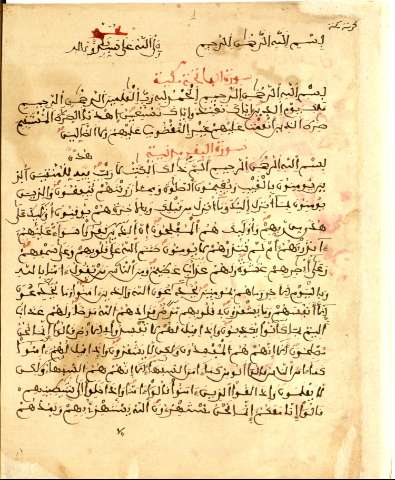 بسم الله الرحمن الرحيم صلى الله على سيدنا محمد وءاله
سورة الفاتحة مكية
بسم الله الرحمن الرحيم الحمد لله رب العلمين الرحمن الرحيم
ملك يوم الدين اياك نعبد واياك نستعين اهدنا الصرط المستقيم
صرط الذين انعمت عليهم غير المغضوب عليهم ولا الضالين
سورة البقرة مدنية
بسم الله الرحمن الرحيم الم ذلك الكتب لا ريب فيه هدى للمتقين الذ
ين يومنون بالغيب ويقيمون الصلوة ومما رزقنهم ينفقون والذين
يومنون بما انزل اليك وما انزل من قبلك وبالاخرة هم يوقنون اوليك على
هدى من ربهم واوليك هم المفلحون ان الذين كفروا سواء عليهم
ءانذرتهم ام لم تنذرهم لا يومنون ختم الله على قلوبهم وعلى سمعهم
وعلى ابصرهم غشوة ولهم عذاب عظيم ومن الناس من يقول ءامنا بالله
وباليوم الاخر وما هم بمومنين يخدعون الله والذين ءامنوا وما يخدعون
الا انفسهم وما يشعرون في قلوبهم مرض فزادهم الله مرضا ولهم عذاب
اليم بما كانوا يكذبون واذا قيل لهم لا تفسدوا في الارض قالوا انما نحن
مصلحون الا انهم هم المفسدون ولكن لا يشعرون واذا قيل لهم ءامنوا
كما ءامن الناس قالوا انومن كما ءامن السفهاء الا انهم هم السفهاء ولكن
لا يعلمون واذا لقوا الذين ءامنوا قالوا ءامنا واذا خلوا الى شيطينهم
قالوا انا معكم انما نحن مستهزءون الله يستهزئ بهم ويمدهم